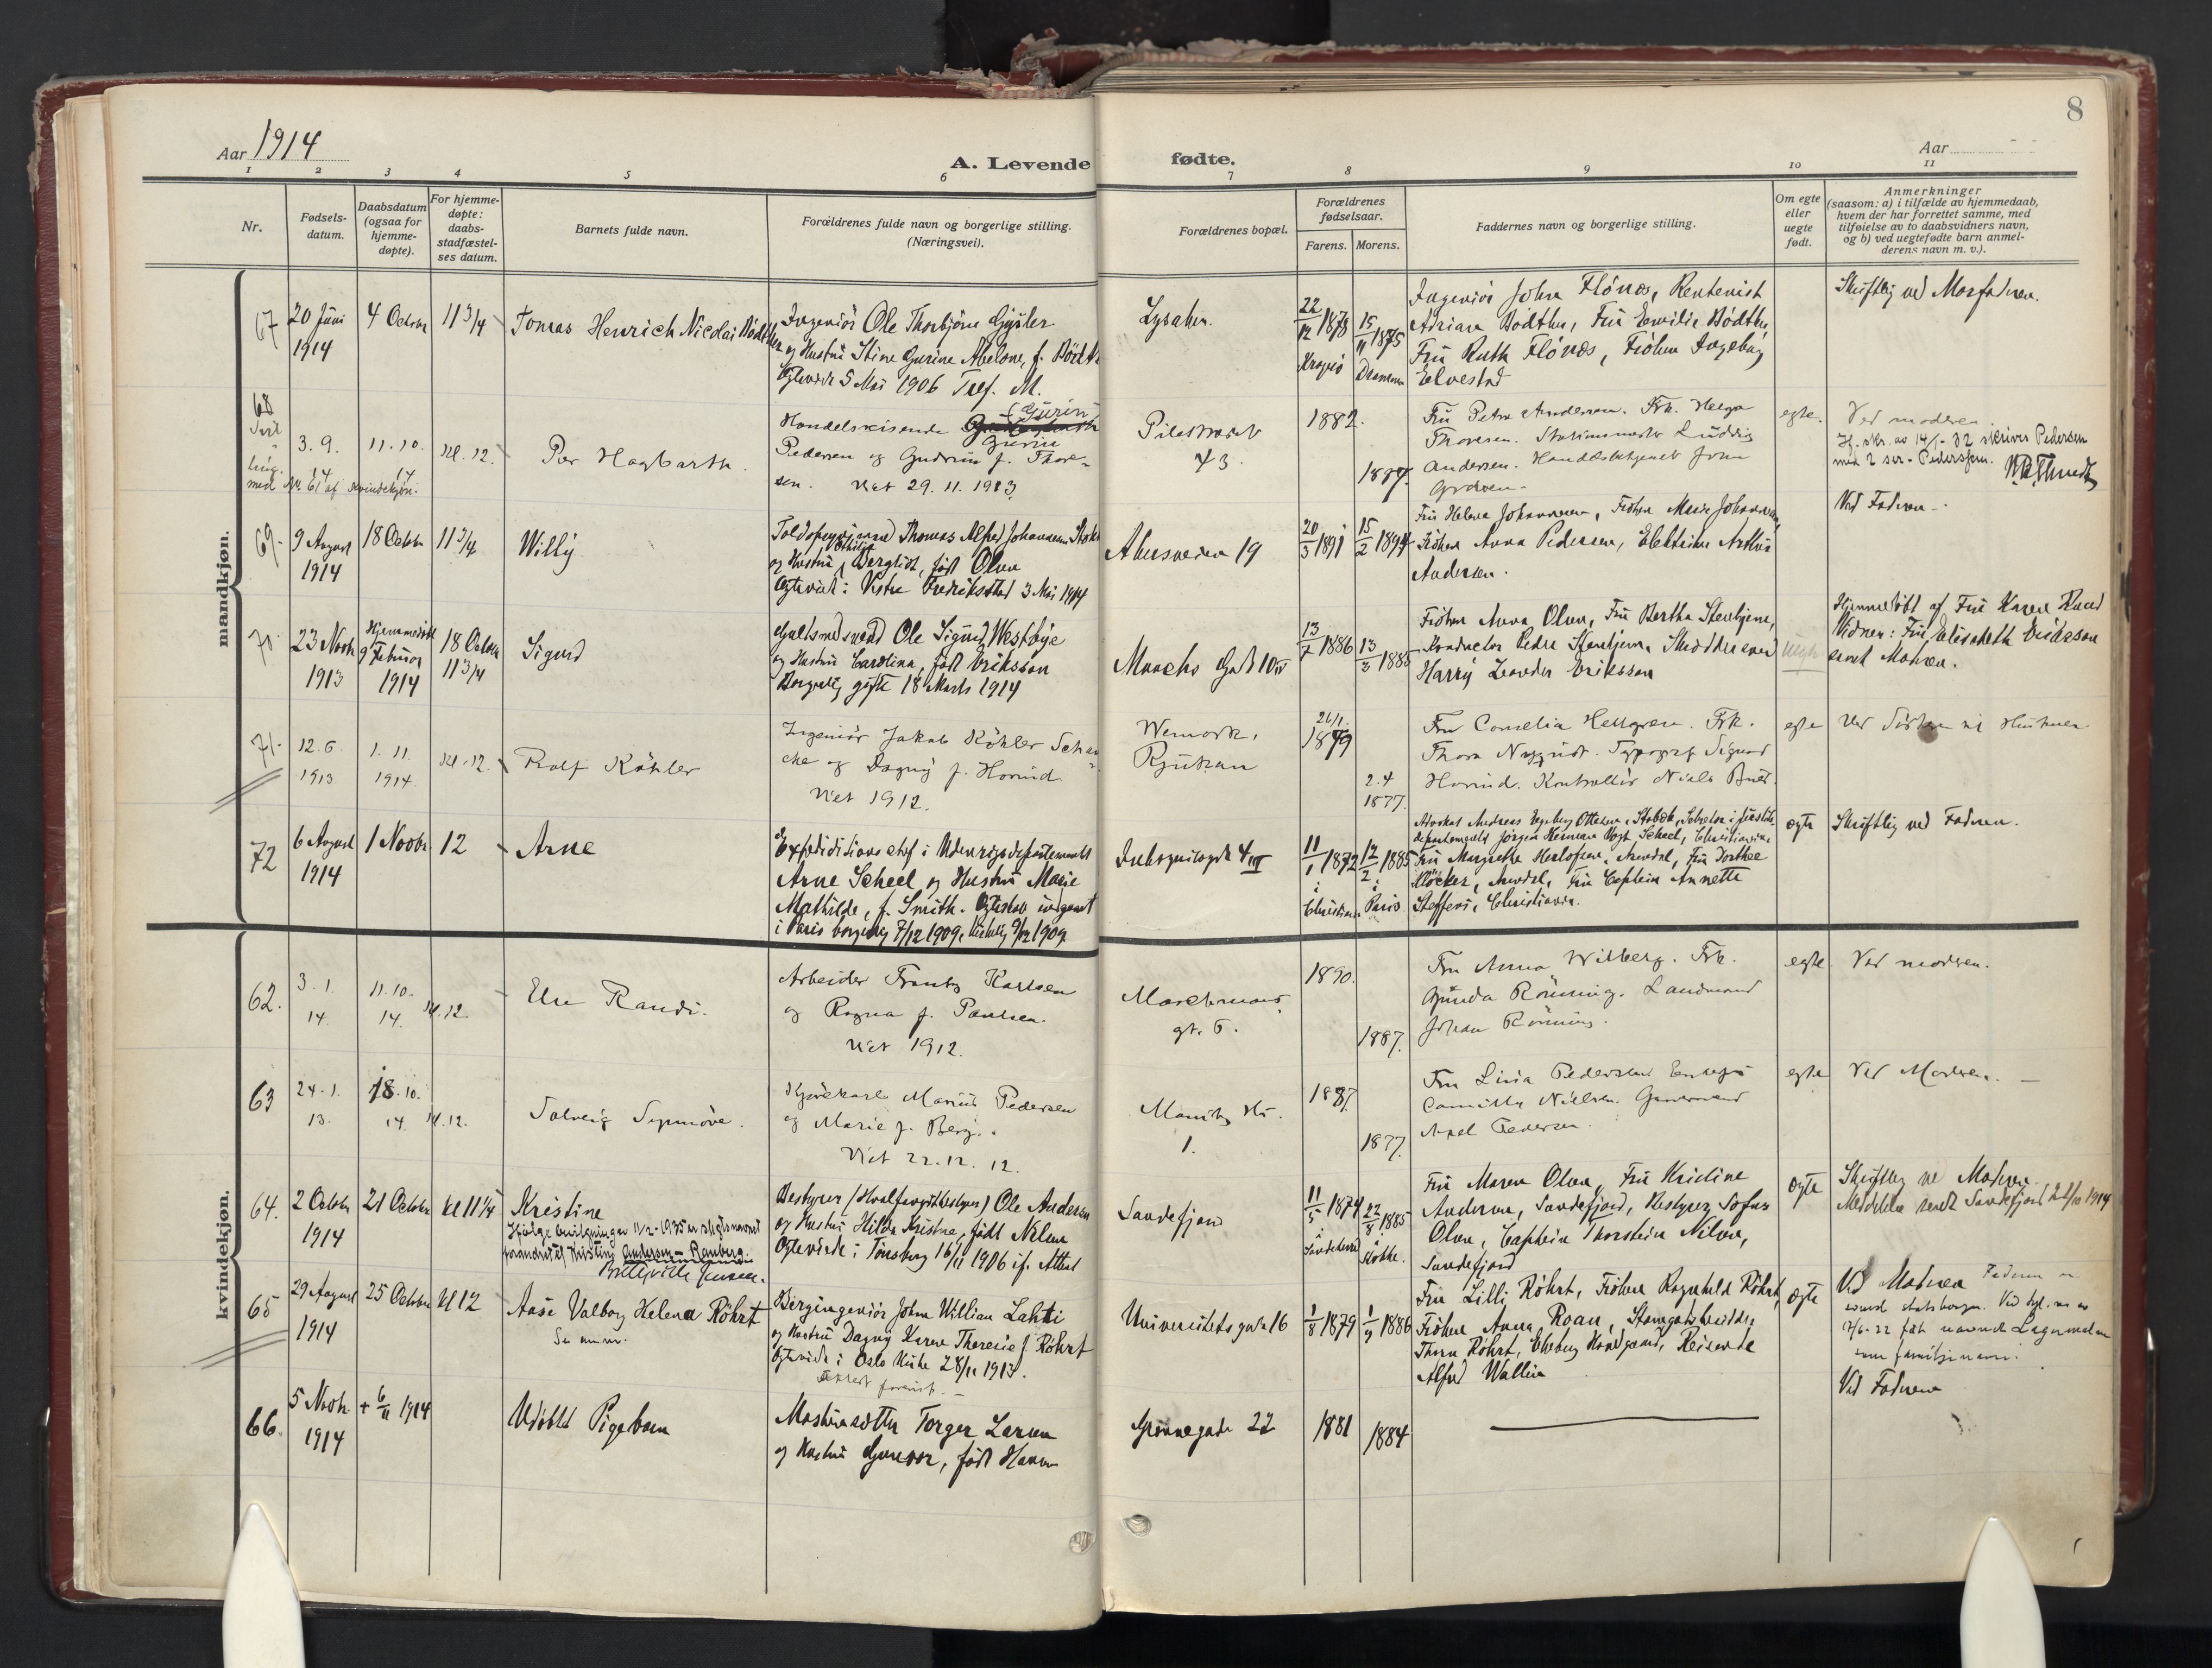 8
Aar 1914
A. Levende fødte.
Aar
1 2 3 4 5 6 7 8 9 10 11
Nr.
Fødsels-
datum.
Daabsdatum
(ogsaa for
hjemme-
døpte).
For hjemme-
døpte:
daabs-
stadfæstel-
ses datum.
Barnets fulde navn.
Forældrenes fulde navn og borgerlige stilling.
(Næringsvei).
Forældrenes bopæl.
Forældrenes
fødselsaar.
Farens. Morens.
Faddernes navn og borgerlige stilling.
Om egte
eller
uegte
født.
Anmerkninger
(saasom: a) i tilfælde av hjemmedaab,
hvem der har forrettet samme, med
tilføielse av to daabsvidners navn,
og b) ved uegtefødte barn anmel-
derens navn m. v.).
mandkjøn.
67
20 Juni
1914
4 Octobr
11 3/4
Tomas Henrich Nicolai
Ingeniör Ole Thorbjörn Gysler
og Hustru Stine Gurine Abelone, f.
5 Mai 1906
Lysaker.
22/12 1878
Kragerö
15/11 1875
Drammen
Ingeniör John Flönes, Rentenist
Adrian Bödtker, Fru Emilie Bödtker
Fru Ruth Flönes, Fröken Ingeborg
Elvestad
Skriftlig ved Morfaderen.
68
3.9.
14
11.10.
14
kl. 12.
med Nr 61 af kvindekjön.
Per Hagbarth.
Handelsreisende
Pedersen og Gudrun f. Thore-
sen. Viet 29.11.1913
Pilestrædet
43.
1882.
1887.
Fru Petra Andersen. Frk. Helga
Thoresen. Stationsmester Ludvig
Andersen. Handelsbetjent John
egte.
Ved moderen
skr. av 14/1-32 skrives Pedersen
med 2 ser - Pederssen.
69.
9 August
1914
18 Octobr
11 3/4
Willy
Thomas Alfred Johannesen
og Hustru Bergliot, født Olsen
Vestre Fredrikstad 3 Mai 1914
Akersveien 19
20/3 1891
15/2 1894
Fru Helene Johannesen, Fröken Marie Johannesen,
Fröken Anna Pedersen, Elektriker Arthur
Andersen.
Ved Faderen.
70
23 Novbr
1913
Hjemmedöbt
9 Februar
1914
18 Octobr
11 3/4
Sigurd
Guldsmedsvend Ole Sigurd Westbye
og Hustru Carolina, født Eriksson
Borgerlig gifte 18 Marts 1914
Munchs Gade 10
13/7 1886
13/3 1885
Fröken Anna Olsen, Fru Bertha Stenhjem,
Konductör Peder Stenhjem, Skræddersvend
Harry Leander Eriksson
Hjemmedöbt af Fru Karen
Vidner: Fru Elisabeth Eriksson
samt Moderen.
71.
12.6.
1913
1.11.
1914.
kl. 12.
Rolf Köhler
Ingeniör Jakob Köhler Schan-
che og Dagny f. Horrud
Viet 1912.
Wemork,
Rjukan
26/1.
1879
2.4
1877.
Fru Cornelia Hellgren. Frk.
Thora Nyquist. Typograf Sigurd
Horrud. Kontrollör Niels Bues.
egte
72
6 August
1914
1 Novbr
12
Arne
Expeditionschef i Udenrigsdepartementet
Arne Scheel og Hustru Marie
Mathilde, f. Smith. Ægteskab indgaaet
i Paris borgerlig 7/12 1909, kirkelig 9/12 1909
Inkognitogd 4 III
11/1 1872
i
Christiania
12/2 1885
i
Paris
Advokat Andreas Ottesen, Stabæk,
departementet Jörgen Herman Vogt Scheel, Christiania
Fru Margrethe Herlofsen, Arendal, Fru Dorthea
Klöcker, Arendal, Fru Captein Annette
Steffens, Christiania.
ægte
Skriftlig ved Faderen.
kvindekjøn.
62.
3.1.
14.
11.10.
14.
kl. 12.
Else Randi.
Arbeider Frantz Karlsen
og Ragna f. Paulsen.
Viet 1912.
gt. 6.
1890.
1887.
Fru Anna Wilberg. Frk.
Gunda Rönning. Landmand
Johan Rönning.
egte
Ved moderen.
63
24.1.
13.
18.10.
14.
kl. 12.
Solveig Synnöve.
Kjörekarl Marius Pedersen
og Marie f. Berg.
Viet 22.12.12.
1.
1887.
1877.
Fru Lina Pedersen
Camilla Nielsen.
Axel Pedersen.
egte
Ved Moderen.
64.
2 Octobr
1914
21 Octobr
kl 11 1/4
Kristine
Ifølge bevilgning av 11/2-1935 er slektsnavnet
forandret til Kristine
Bestyrer (Hvalfangstbestyrer) Ole Andersen
og Hustru Hilda Kristine, født Nilsen
Ægteviede i Tönsberg 16/11 1906 if. Attest
Sandefjord
11/5 1879
Sandeherred
22/8 1885
Stokke.
Fru Maren Olsen, Fru Kristine
Andersen, Sandefjord, Bestyrer Sofus
Olsen, Captein Thorstein Nilsen,
Sandefjord
ægte
Skriftlig ved Moderen
Meddelelse sendt Sandefjord 21/10 1914
65
29 August
1914
25 Octobr
kl 12
Aase Valborg Helena Röhrt
Se anm.
Bergingeniör John William Lahti
og Hustru Dagny Karen Theresie f. Röhrt
Ægteviede i Oslo Kirke 28/11 1913.
Attest forevist.
Universitetsgaden 16
1/8 1879
1/9 1886
Fru Lilli Röhrt, Fröken Ragnhild Röhrt,
Fröken Anna Roan,
Thorn Röhrt, Ekeberg Hovedgaard, Reisende
Alfred Wallin
ægte
Ved Moderen Faderen er
svensk statsborger.
17/6-22 fått navnet Lagermalm
som familjenavn.
66.
5 Novbr
1914
+ 6/11 1914
Udöbt Pigebarn
Maskinsætter Torger Larsen
og Hustru Gunvor, født Hansen
Grönnegade 22
1881
1884
Ved Faderen